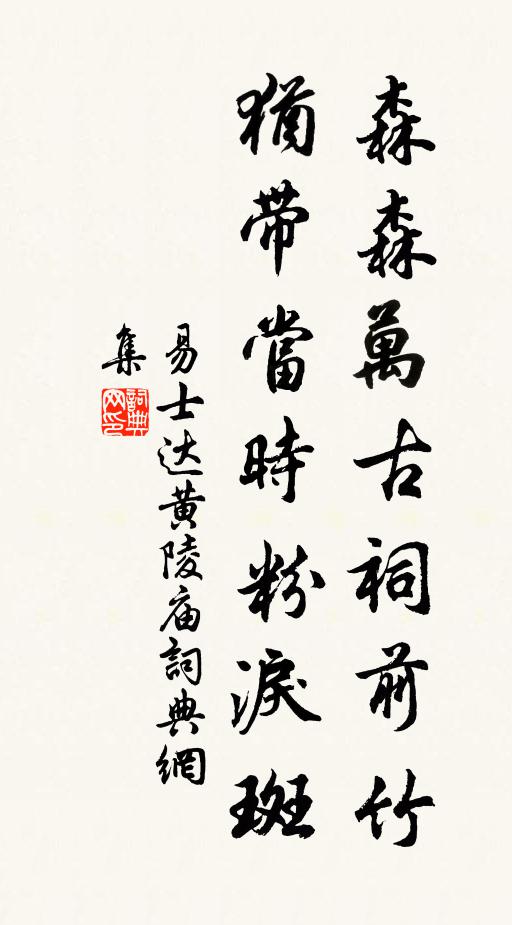 森森萬古祠前竹
猶帶當時粉淚斑
易士达黄陵庙詞典網
集
詞典网印